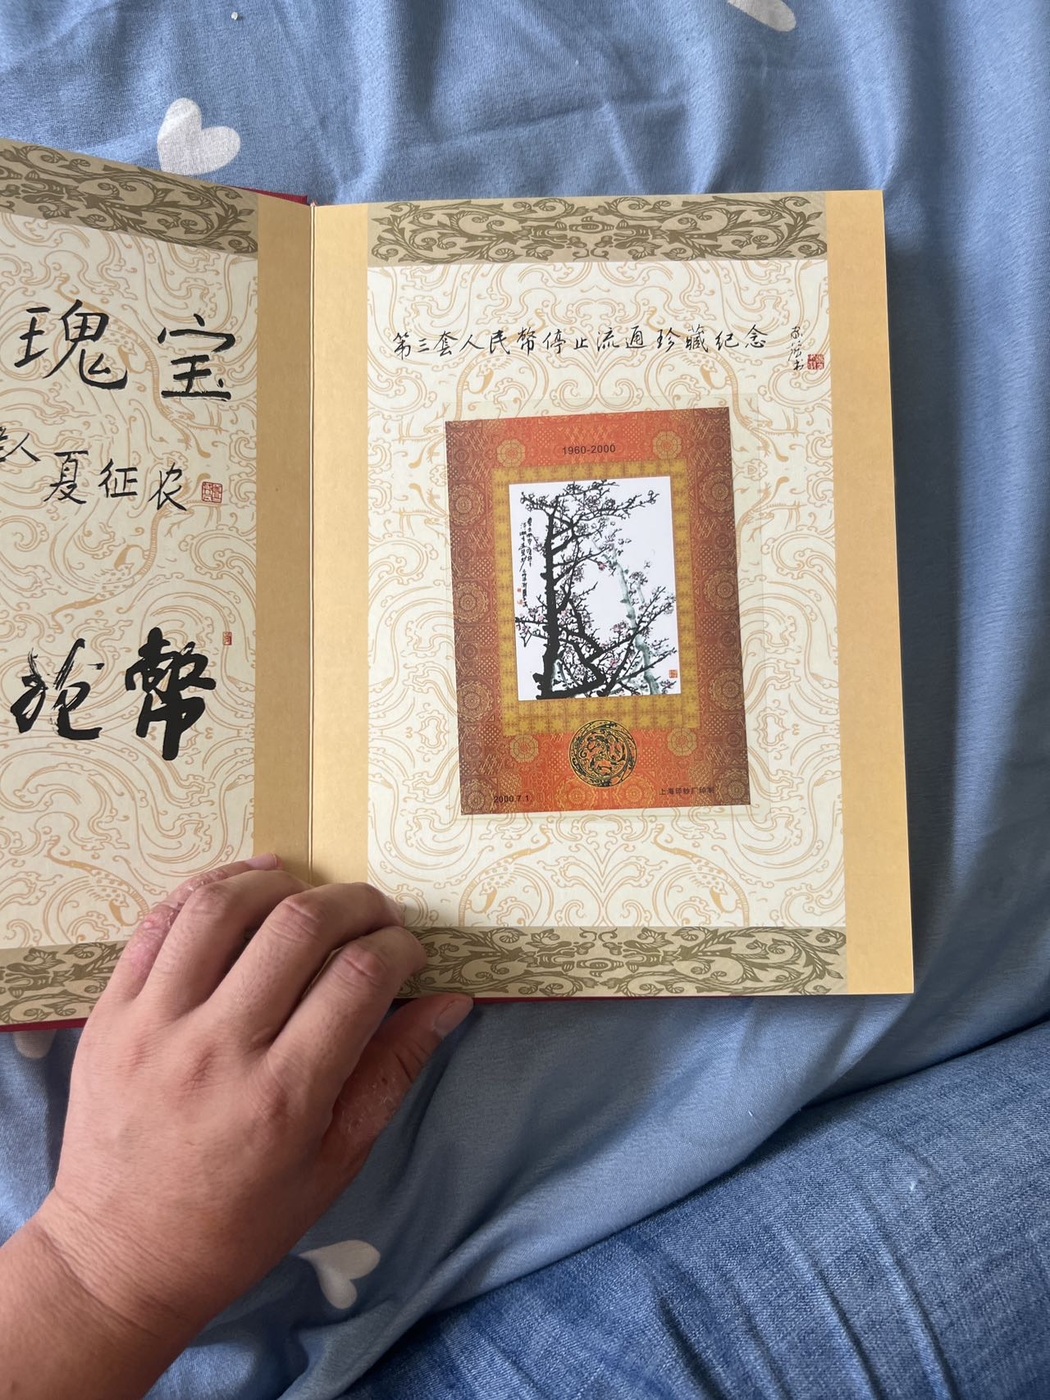 瑰宝
人夏征农
幣
第三套人民幣停止流通珍藏纪念
1960-2000
2000.7.1
上海印钞厂印制